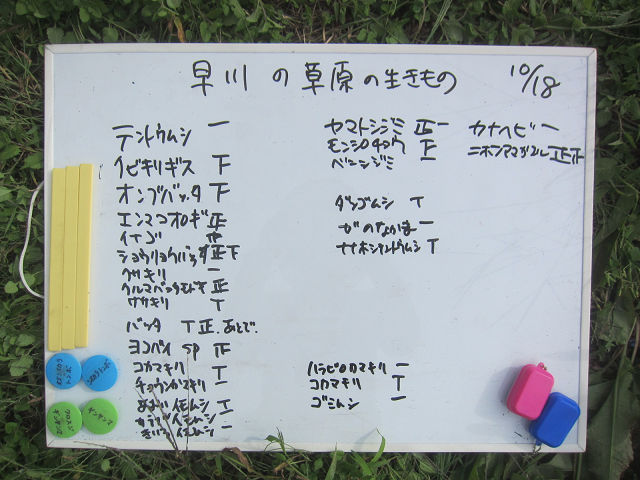 早川 の 草原 の 生きもの 10/18
テントウムシ 一
イビキリギス 下
オンブバッタ 下
エンマコオロギ 正
イナゴ
ショウリョウバッタ 正下
クサキリ 一
クルマバッタモドキ 正
ササキリ T
バッタ T 正. あとで.
ヨコバイ sp 正
コカマキリ T
チョウセンカマキリ 一
イモムシ
イモムシ 一
イモムシ 一
ヤマトシジミ 正一
モンシロチョウ 正
ベニシジミ
ダンゴムシ T
ガのなかま 一
ナナホシテントウムシ T
ハラビロカマキリ 一
コカマキリ T
ゴミムシ 一
カナヘビ 一
ニホンアマガエル 正正